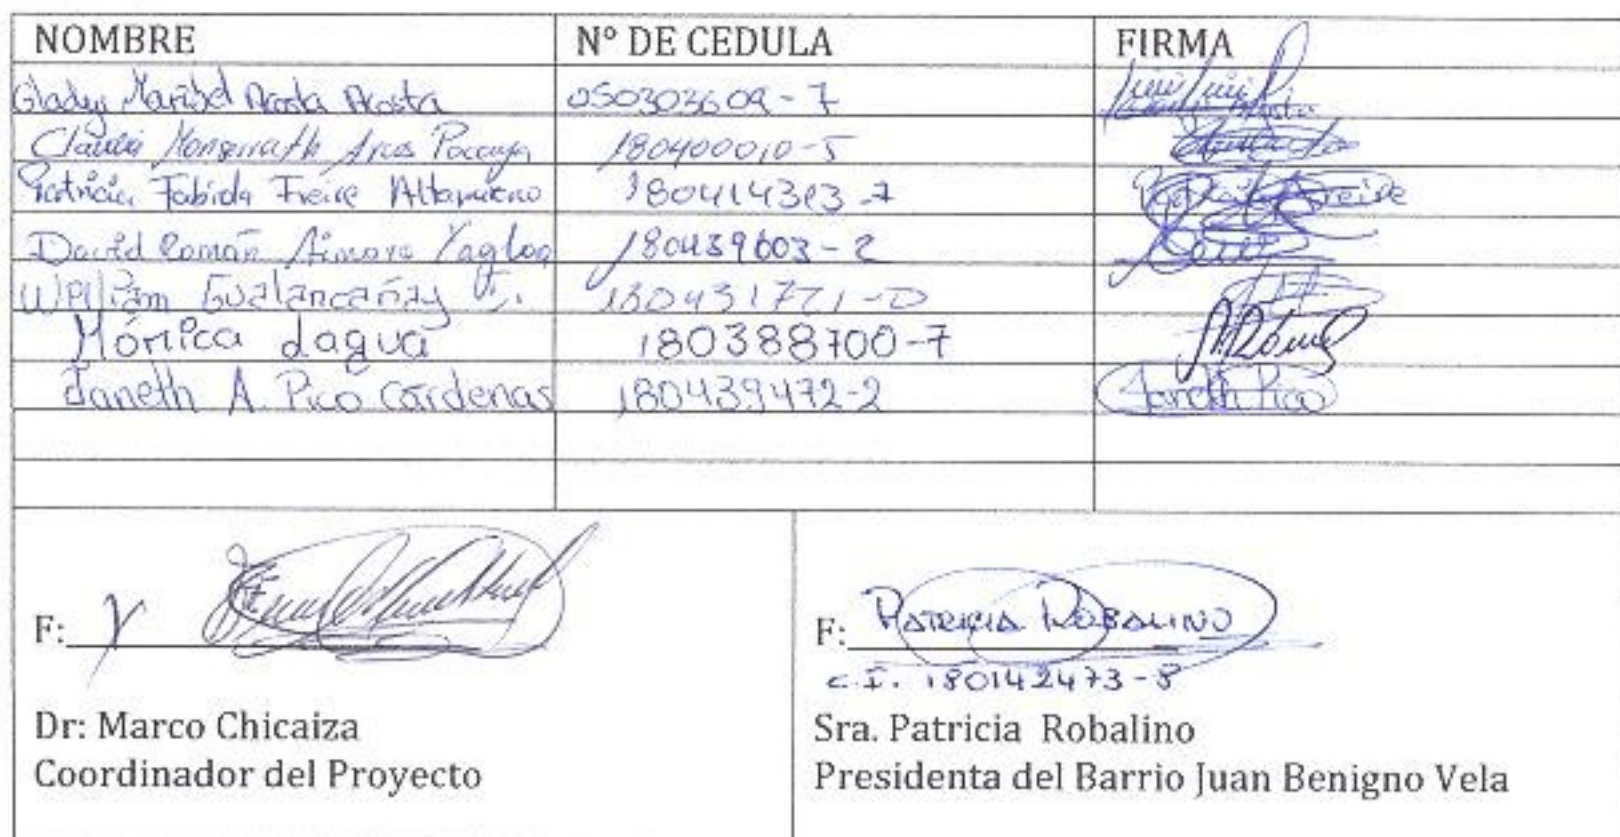 NOMBRE Nº DE CEDULA FIRMA
Gladys Maribel Acosta Acosta 050303609-7
Claudia Monserrath Arcos Pacaya 180400010-5
Patricia Fabiola Freire Altamirano 180414313-7 Freire
David Román Aimara Yagloa 180459603-2
William Gualancañay V. 180431771-0
Mónica Lagua 180388700-7
Janeth A. Pico Cárdenas 180439472-2 Janeth Pico
F: F: PATRICIA ROBALINO
C.I. 180142473-8
Dr: Marco Chicaiza Sra. Patricia Robalino
Coordinador del Proyecto Presidenta del Barrio Juan Benigno Vela